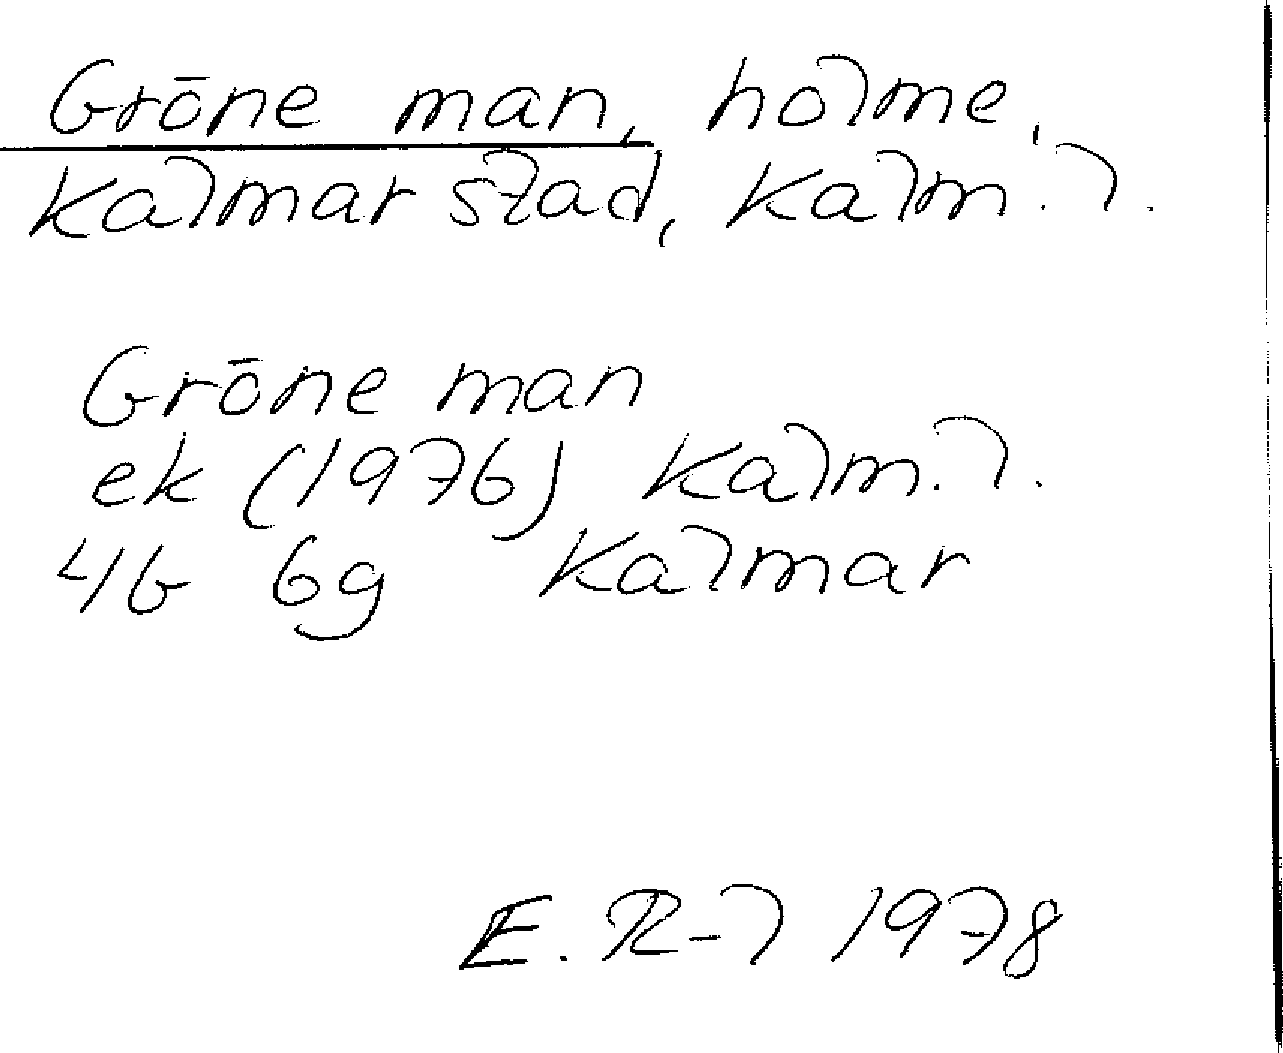 Gröne man, holme,
Kalmar stad, Kalm. l.
Gröne man
ek (1976) Kalm. l.
4G 6g Kalmar
E. R-l 1978